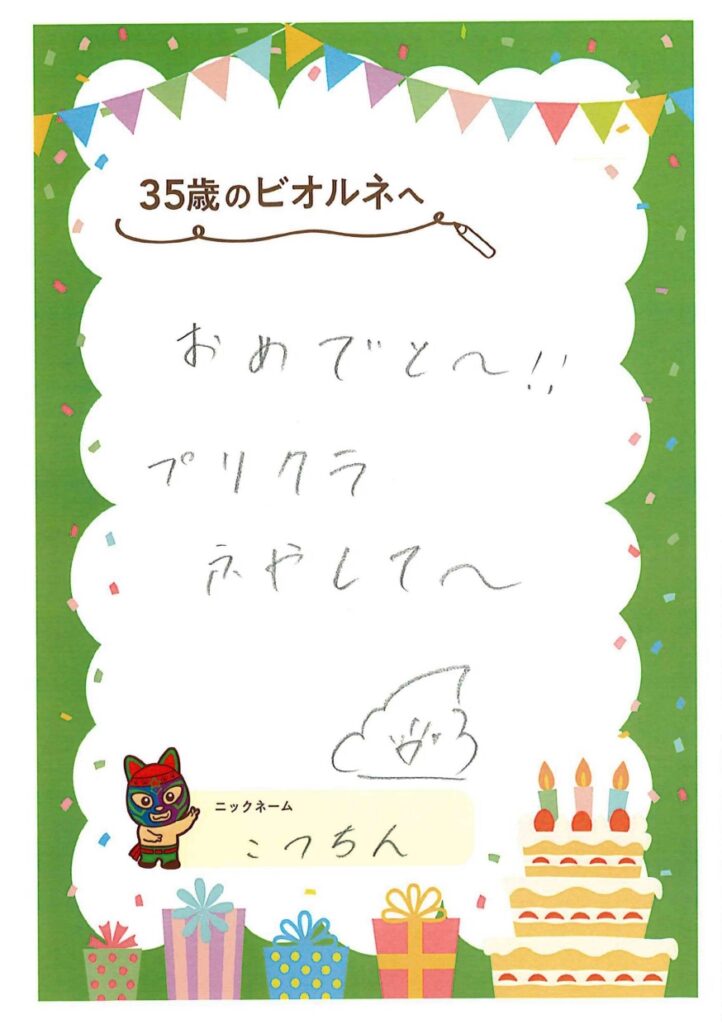 35歳のビオルネへ
おめでと〜!!
プリクラ
ふやして〜
ニックネーム
こっちん